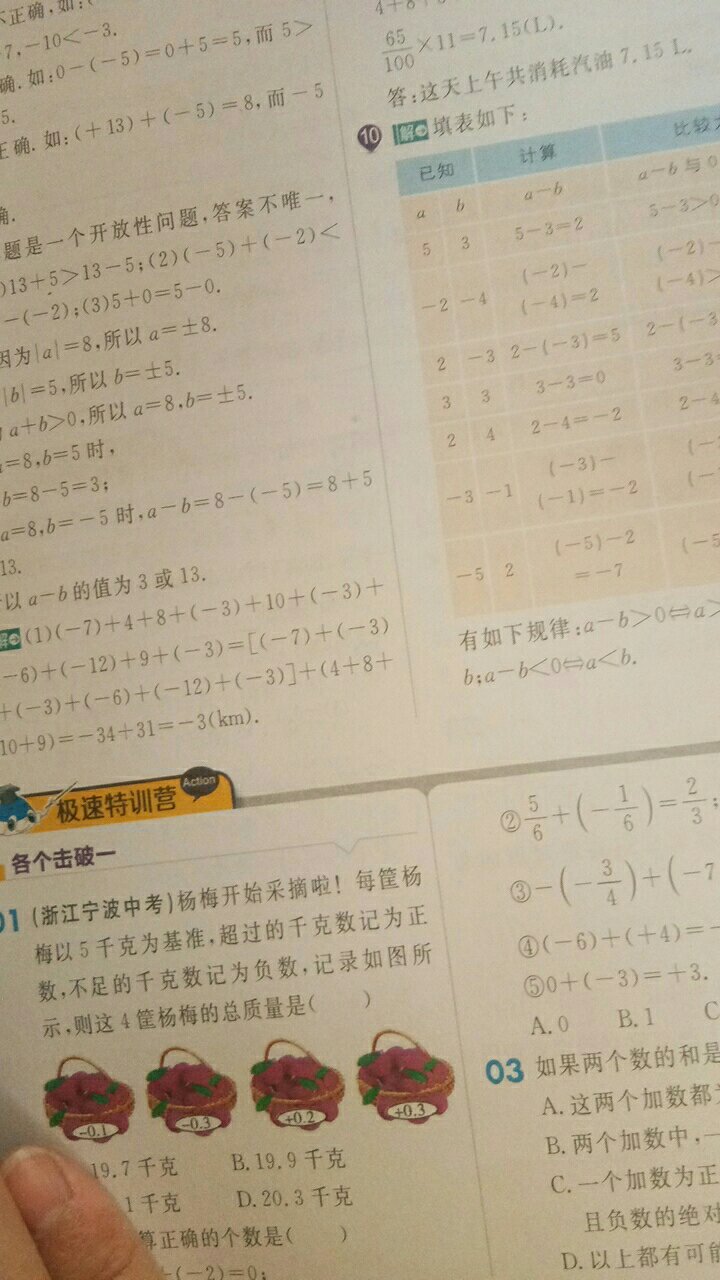 不正确,如:(
-7,-10<-3.
确.如:0-(-5)=0+5=5,而5>
5.
正确.如:(+13)+(-5)=8,而-5
确.
题是一个开放性问题,答案不唯一,
)13+5>13-5;(2)(-5)+(-2)<
-(-2);(3)5+0=5-0.
因为|a|=8,所以a=±8.
|b|=5,所以b=±5.
a+b>0,所以a=8,b=±5.
a=8,b=5时,
b=8-5=3;
a=8,b=-5时,a-b=8-(-5)=8+5
13.
以a-b的值为3或13.
解 (1)(-7)+4+8+(-3)+10+(-3)+
-6)+(-12)+9+(-3)=[(-7)+(-3)
+(-3)+(-6)+(-12)+(-3)]+(4+8+
10+9)=-34+31=-3(km).
65/100×11=7.15(L).
答:这天上午共消耗汽油7.15 L.
10 解 填表如下:
已知 计算 比较
a b a-b a-b与0
5 3 5-3=2 5-3>0
-2 -4 (-2)-(-4)=2 (-2)-(-4)>
2 -3 2-(-3)=5 2-(-3
3 3 3-3=0 3-3=
2 4 2-4=-2 2-4
-3 -1 (-3)-(-1)=-2 (-
-5 2 (-5)-2=-7 (-5
有如下规律:a-b>0⇔a>
b;a-b<0⇔a<b.
极速特训营 Action
各个击破一
01 (浙江宁波中考)杨梅开始采摘啦!每筐杨
梅以5千克为基准,超过的千克数记为正
数,不足的千克数记为负数,记录如图所
示,则这4筐杨梅的总质量是( )
-0.1 -0.3 +0.2 +0.3
19.7千克 B.19.9千克
1千克 D.20.3千克
算正确的个数是( )
+(-2)=0;
②5/6+(-1/6)=2/3;
③-(-3/4)+(-7
④(-6)+(+4)=-
⑤0+(-3)=+3.
A.0 B.1 C
03 如果两个数的和是
A.这两个加数都
B.两个加数中,一
C.一个加数为正
且负数的绝对
D.以上都有可能